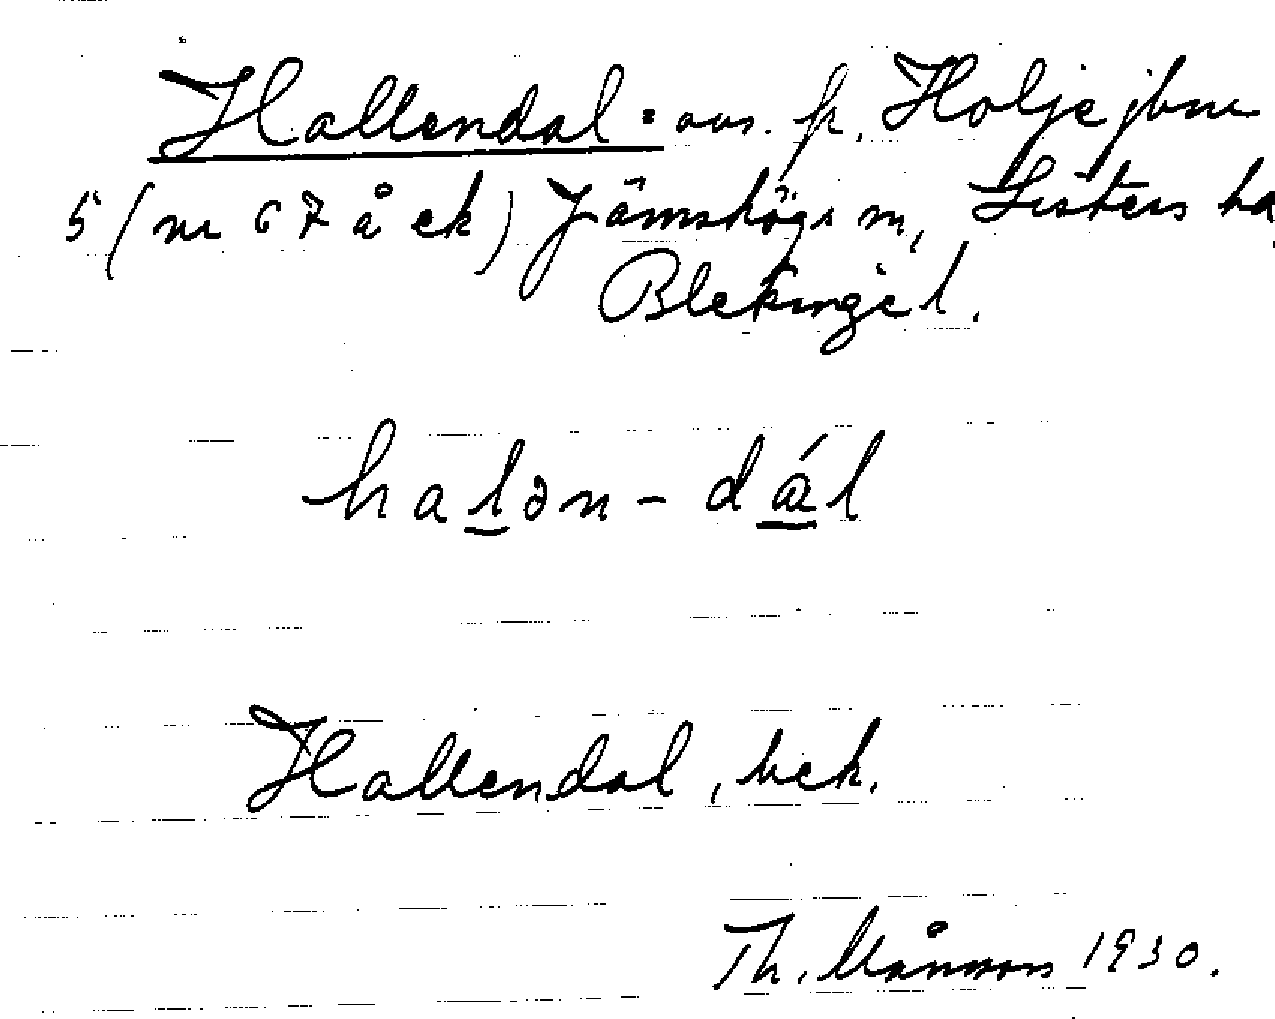 Hallendal: avs. fr. Holje jbnr
5 (nr 67 å ek) Jämshögs sn, Listers hd
Blekinge l.
halən-dál
Hallendal, bek.
Th. Månsson 1930.